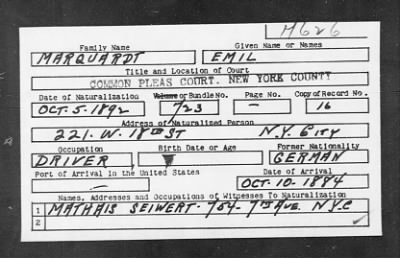 M626
Family Name Given Name or Names
MARQUARDT EMIL
Title and Location of Court
COMMON PLEAS COURT, NEW YORK COUNTY
Date of Naturalization Volume or Bundle No. Page No. Copy of Record No.
OCT. 5. 1892 723 — 16
Address of Naturalized Person
221. W. 18TH ST N.Y. CITY
Occupation Birth Date or Age Former Nationality
DRIVER GERMAN
Port of Arrival in the United States Date of Arrival
— OCT. 10. 1884
Names, Addresses and Occupations of Witnesses To Naturalization
1 MATHAIS SEIWERT - 754 - 7TH AVE. N.Y.C
2